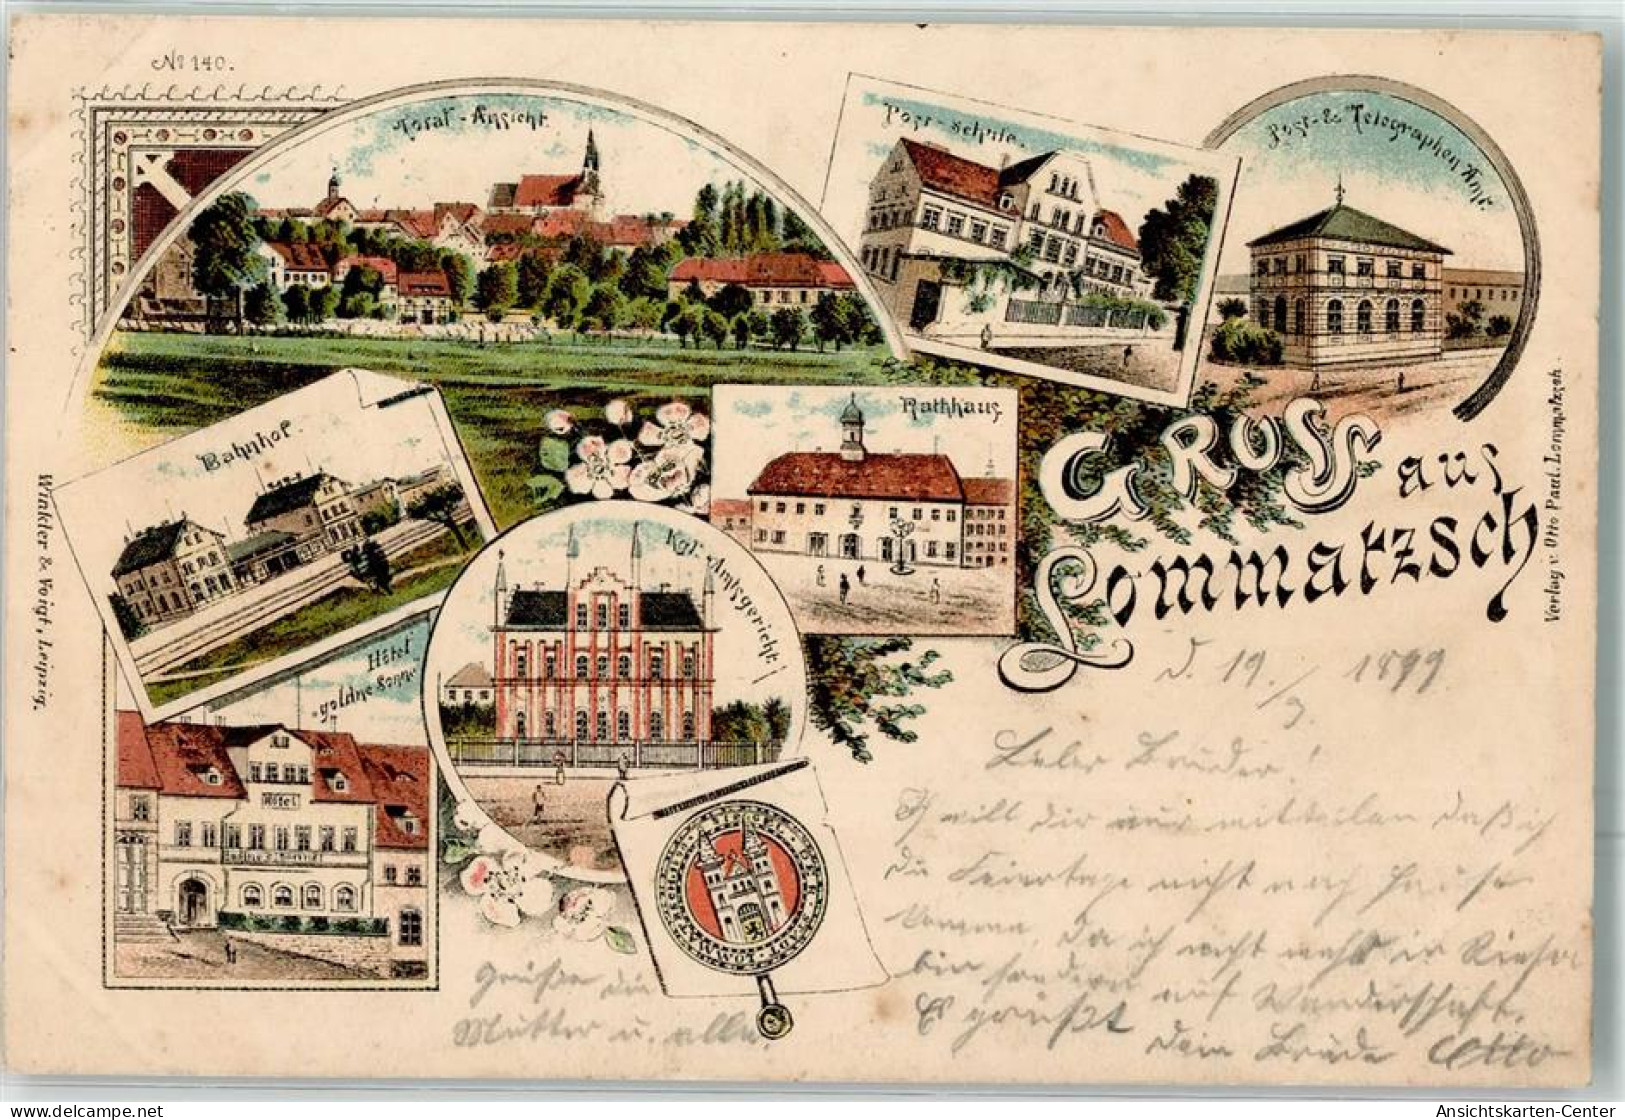 No 140.
Total-Ansicht.
Post-schule.
Post- & Telegraphen Amt.
Bahnhof.
Rathhaus
GRUSS
aus
Lommatzsch
Kgl. Amtsgericht.
Hôtel
"goldne Sonne"
Hôtel
Winkler & Voigt, Leipzig.
Verlag v. Otto Paul, Lommatzsch.
d. 19./9. 1899
Lieber Bruder!
Ich will dir nur mitteilen daß ich
die Feiertage nicht nach Hause
komme, da ich nicht mehr in Riesa
bin sondern auf Wanderschaft.
Es grüßt
Dein Bruder Otto
Grüße die
Mutter u. alle.
Ansichtskarten-Center
www.delcampe.net